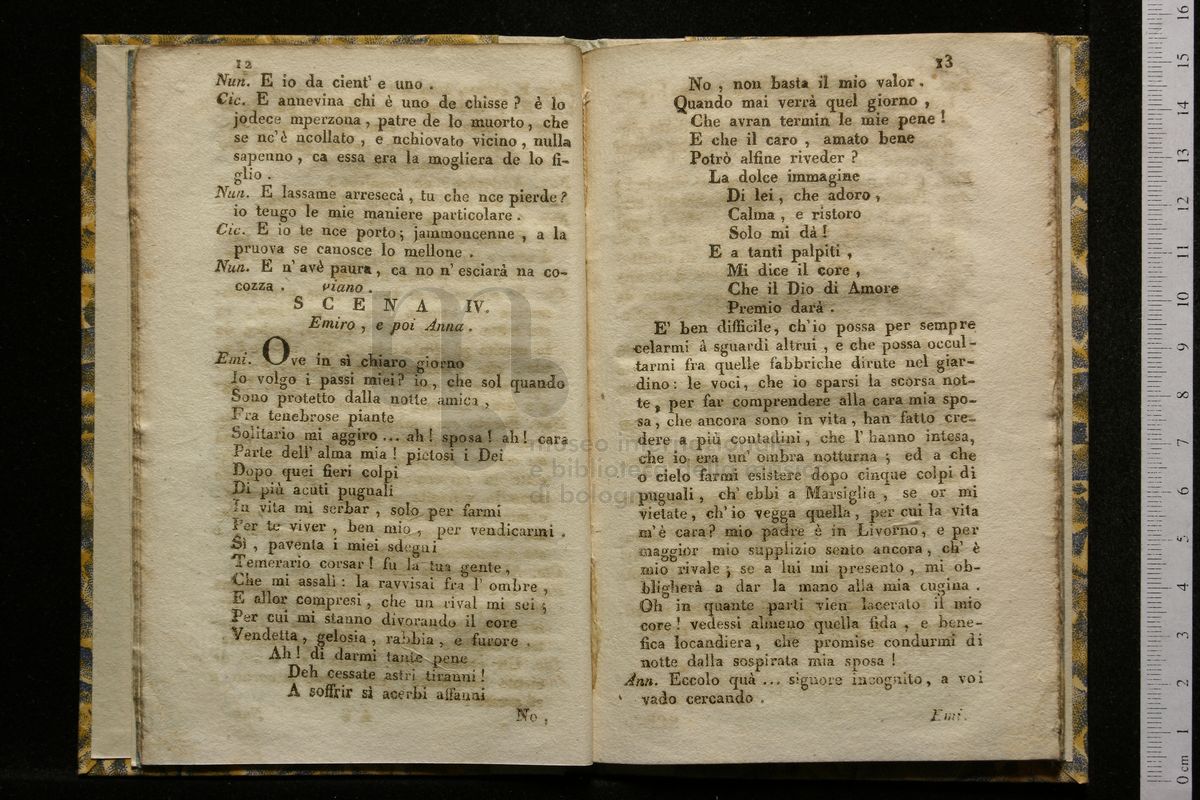 12
Nun. E io da cient' e uno .
Cic. E annevina chi è uno de chisse ? è lo
jodece mperzona , patre de lo muorto , che
se nc'è ncollato , e nchiovato vicino , nulla
sapenno , ca essa era la mogliera de lo fi-
glio .
Nun. E lassame arresecà , tu che nce pierde ?
io tengo le mie maniere particolare .
Cic. E io te nce porto ; jammoncenne , a la
pruova se canosce lo mellone .
Nun. E n' avè paura , ca no n' esciarà na co-
cozza . viano .
SCENA IV.
Emiro , e poi Anna .
Emi. Ove in sì chiaro giorno
Io volgo i passi miei ? io , che sol quando
Sono protetto dalla notte amica ,
Fra tenebrose piante
Solitario mi aggiro ... ah ! sposa ! ah ! cara
Parte dell' alma mia ! pietosi i Dei
Dopo quei fieri colpi
Di più acuti pugnali
In vita mi serbar , solo per farmi
Per te viver , ben mio , per vendicarmi .
Sì , paventa i miei sdegni
Temerario corsar ! fu la tua gente ,
Che mi assalì : la ravvisai fra l' ombre ,
E allor compresi , che un rival mi sei ;
Per cui mi stanno divorando il core
Vendetta , gelosia , rabbia , e furore .
Ah ! di darmi tante pene
Deh cessate astri tiranni !
A soffrir sì acerbi affanni
No ,
13
No , non basta il mio valor .
Quando mai verrà quel giorno ,
Che avran termin le mie pene !
E che il caro , amato bene
Potrò alfine riveder ?
La dolce immagine
Di lei , che adoro ,
Calma , e ristoro
Solo mi dà !
E a tanti palpiti ,
Mi dice il core ,
Che il Dio di Amore
Premio darà .
E' ben difficile, ch'io possa per sempre
celarmi â sguardi altrui , e che possa occul-
tarmi fra quelle fabbriche dirute nel giar-
dino : le voci, che io sparsi la scorsa not-
te , per far comprendere alla cara mia spo-
sa , che ancora sono in vita , han fatto cre-
dere a più contadini , che l' hanno intesa,
che io era un' ombra notturna ; ed a che
o cielo farmi esistere dopo cinque colpi di
puguali , ch' ebbi a Marsiglia , se or mi
vietate , ch'io vegga quella , per cui la vita
m'è cara ? mio padre è in Livorno, e per
maggior mio supplizio sento ancora , ch' è
mio rivale ; se a lui mi presento , mi ob-
bligherà a dar la mano alla mia cugina .
Oh in quante parti vien lacerato il mio
core ! vedessi almeno quella fida , e bene-
fica locandiera , che promise condurmi di
notte dalla sospirata mia sposa !
Ann. Eccolo quà ... signore incognito , a voi
vado cercando .
Emi.